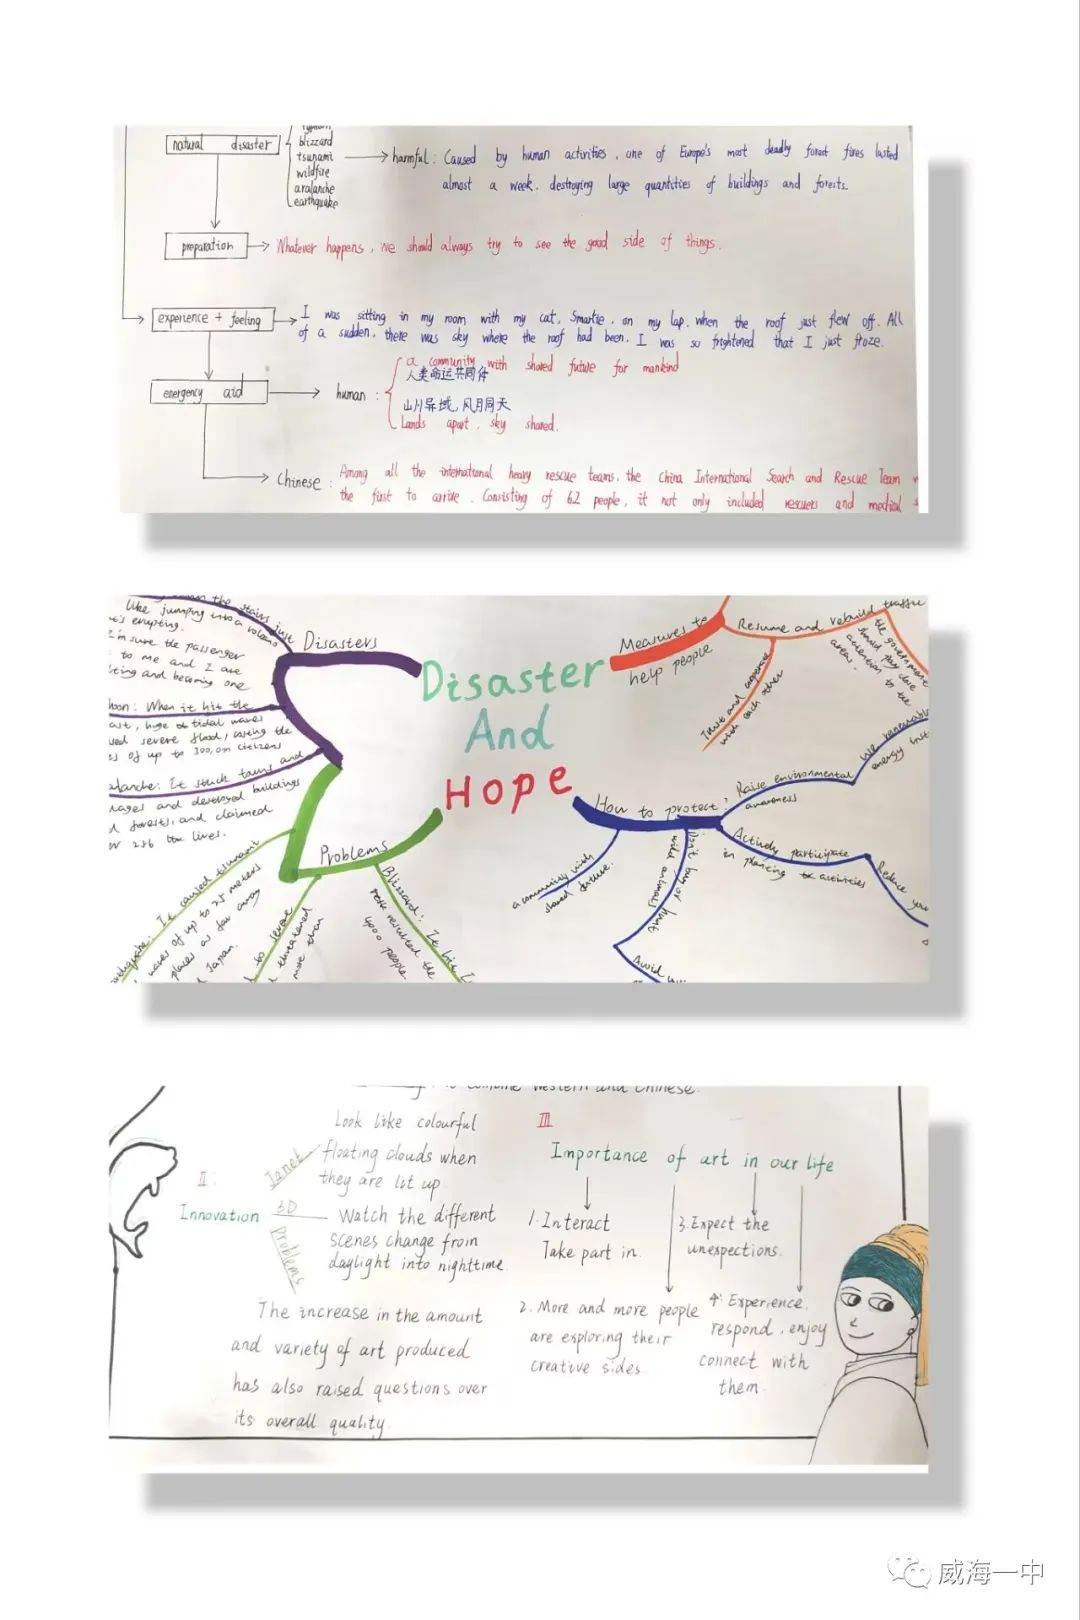 natural disaster
blizzard
tsunami
wildfire
avalanche
earthquake
harmful : Caused by human activities, one of Europe's most deadly forest fires lasted
almost a week, destroying large quantities of buildings and forests.
preparation
Whatever happens, we should always try to see the good side of things.
experience + feeling
I was sitting in my room with my cat, Smartie, on my lap, when the roof just flew off. All
of a sudden, there was sky where the roof had been. I was so frightened that I just froze.
emergency aid
human :
a community with shared future for mankind
人类命运共同体
山川异域，风月同天
Lands apart, sky shared.
Chinese : Among all the international heavy rescue teams, the China International Search and Rescue Team
the first to arrive. Consisting of 62 people, it not only included rescuers and medical
the stairs just
like jumping into a volcano
erupting.
I'm sure the passenger
to me and I are
and becoming one
Disasters
When it hit the
huge tidal waves
severe flood, costing the
of up to 300,000 citizens
It stuck towns and
and destroyed buildings
forests, and claimed
256 lives.
Disaster
And
Hope
Measures to
help people
Resume and rebuild traffic
the government
should pay close
attention to the
areas.
Trust and cooperate
with each other
How to protect?
Raise environmental
awareness
Use renewable
energy
Actively participate
in planting activities
Reduce
a community with
shared future.
Don't buy or
wild animals
Avoid
Problems
It caused tsunami
waves of up to 25 meters
places as far away
Japan.
to severe
threatened
more than
Blizzard: It hit
resulted the
4000 people
to combine Western and Chinese.
II.
Innovation
Janet
Look like colourful
floating clouds when
they are lit up.
3D
Watch the different
scenes change from
daylight into nighttime.
Problems
The increase in the amount
and variety of art produced
has also raised questions over
its overall quality.
III
Importance of art in our life
1. Interact
Take part in.
3. Expect the
unexpections.
2. More and more people
are exploring their
creative sides.
4. Experience,
respond, enjoy
connect with
them.
威海一中